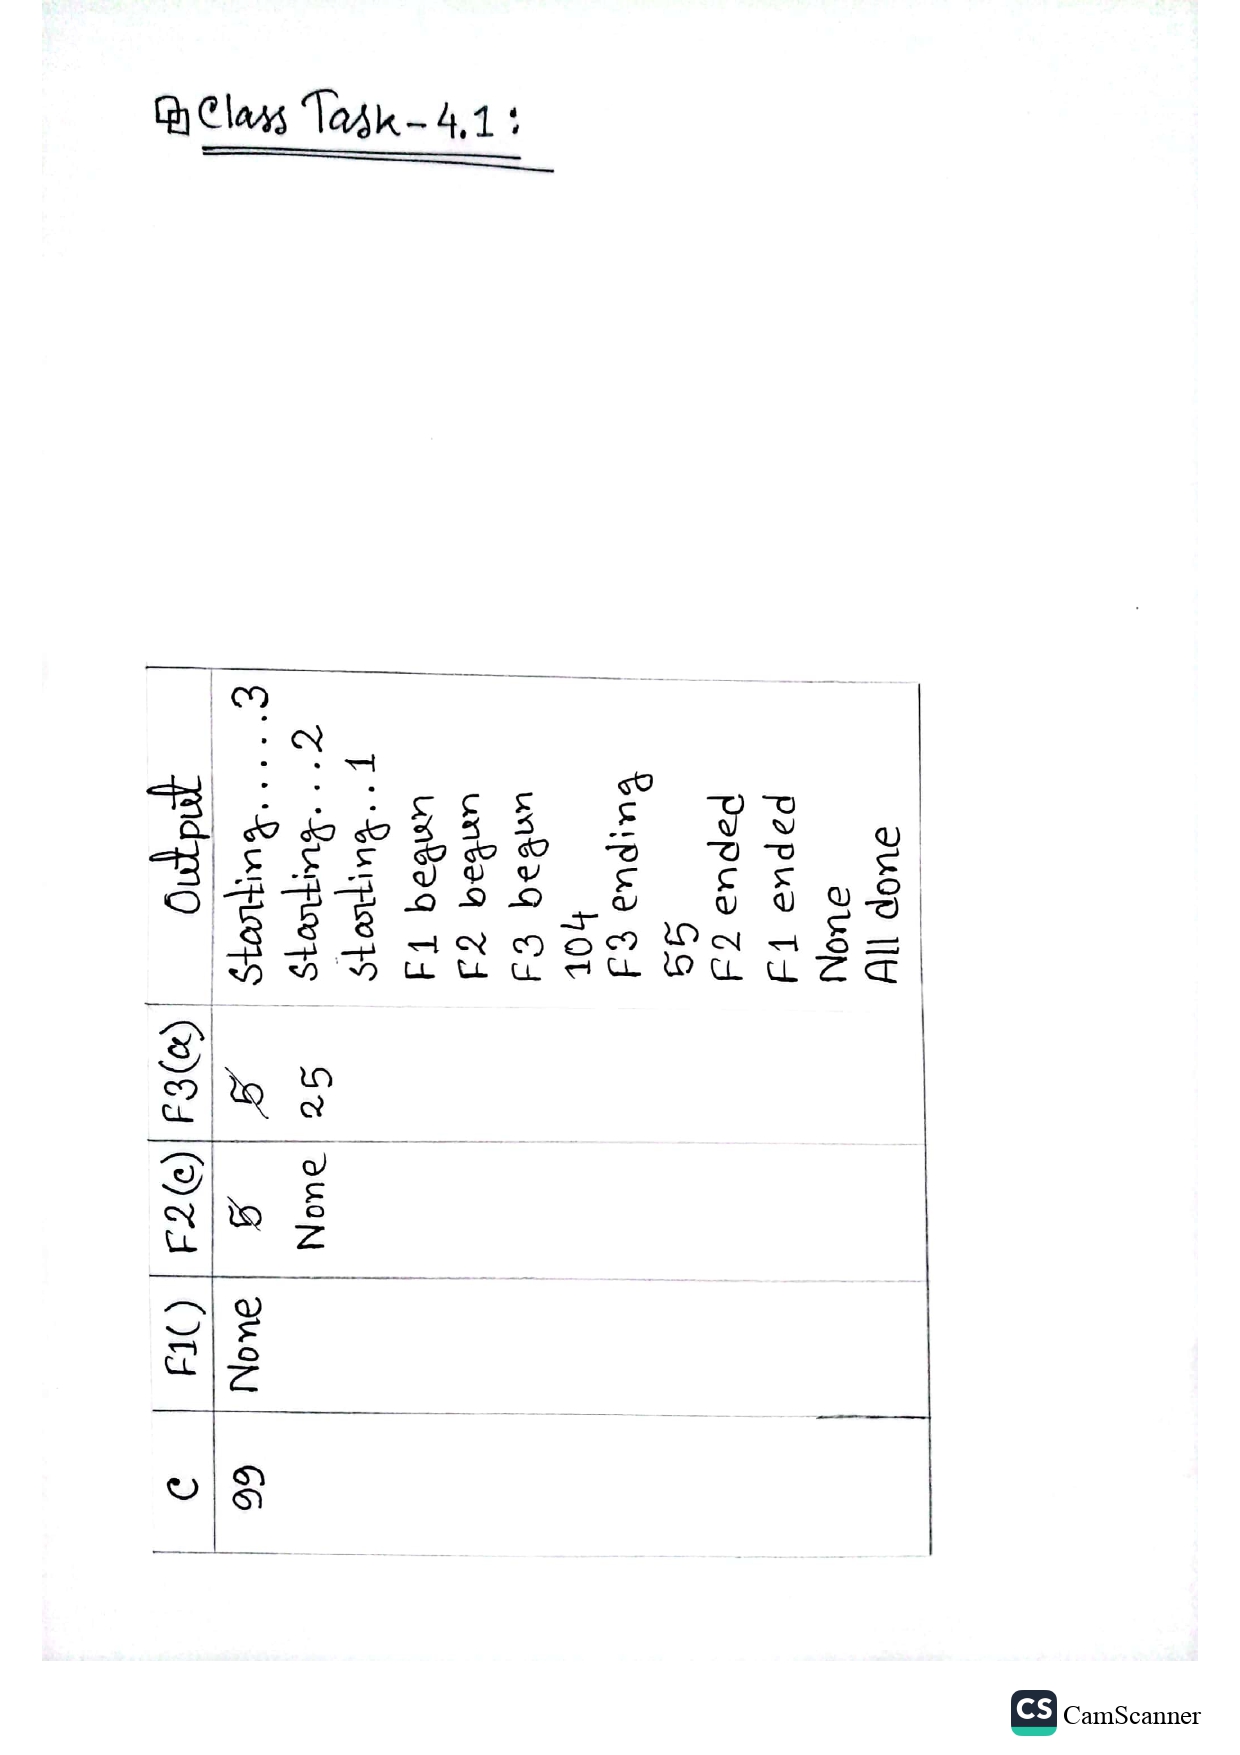 Class Task-4.1:
C F1() F2(c) F3(a) Output
99 None 5 5 Starting......3
None 25 Starting...2
Starting..1
F1 begun
F2 begun
F3 begun
104
F3 ending
55
F2 ended
F1 ended
None
All done
CS CamScanner